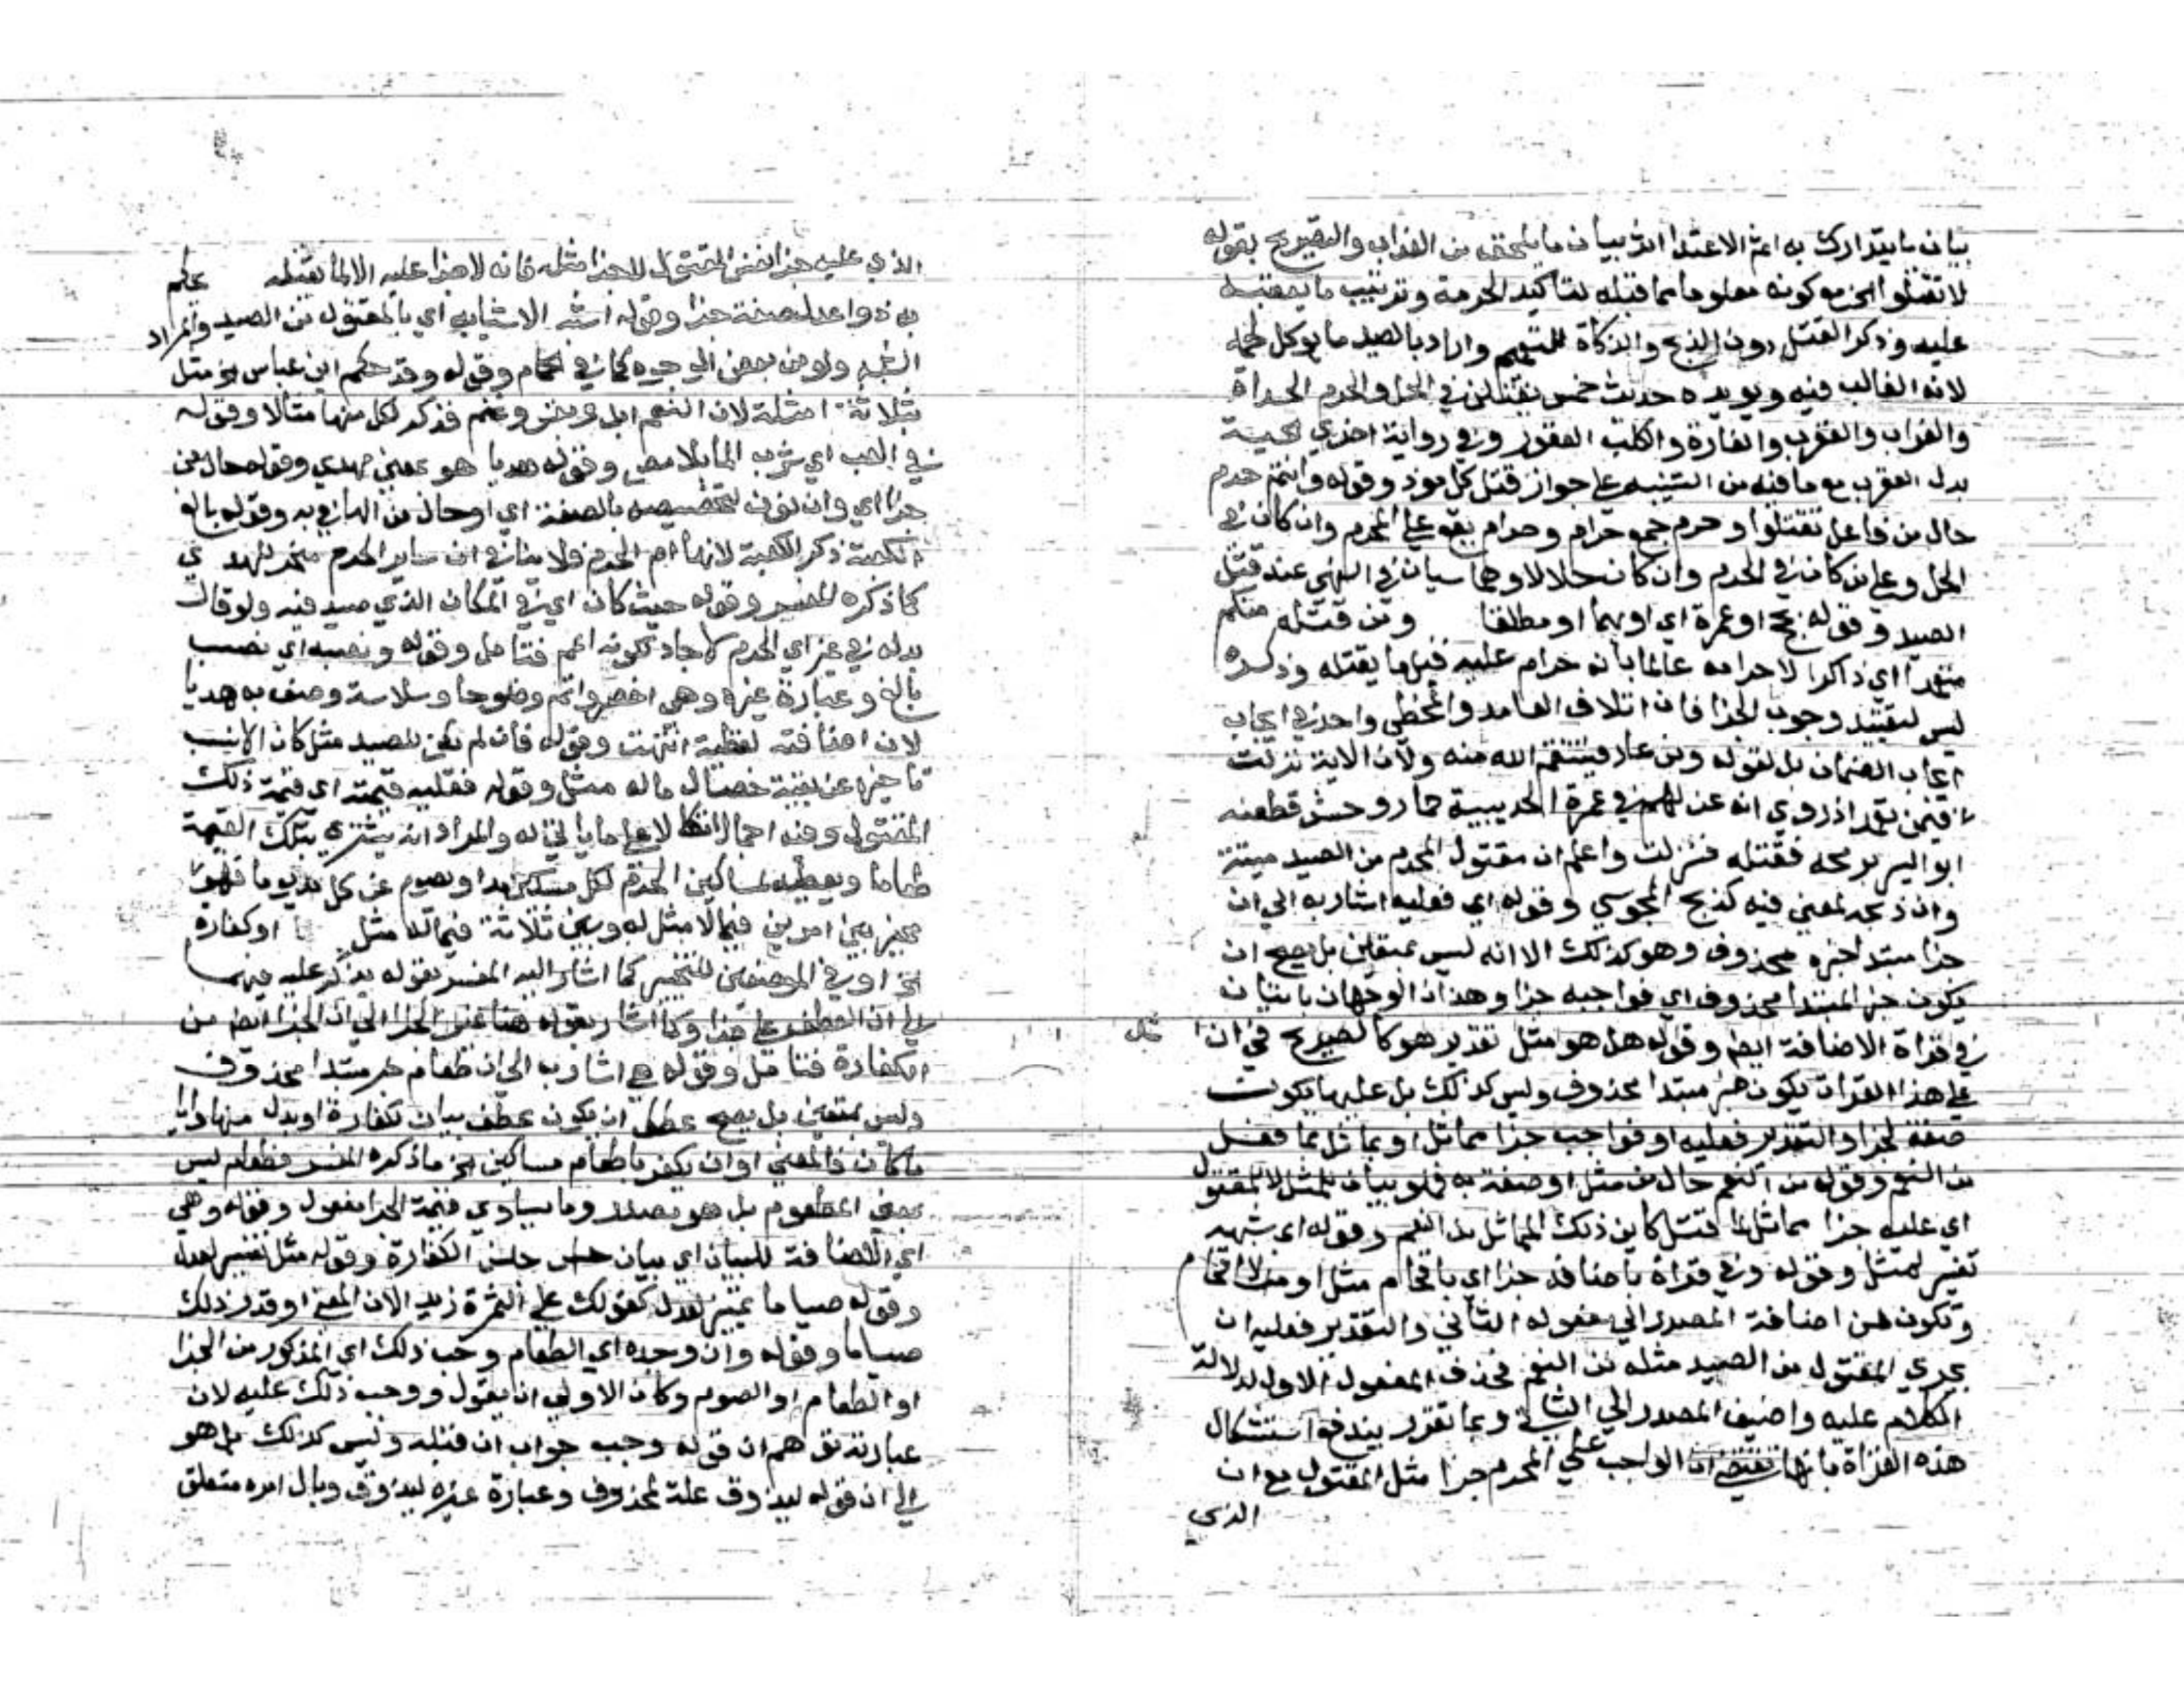 بيان ما يتدارك به اثم الاعتداء اثر بيان ما يلحقه من العذاب والتصريح بقوله
لا تقتلوا الخ مع كونه معلوما مما قبله لتاكيد الحرمة وترتيب ما يعقبه
عليه وذكر القتل دون الذبح والذكاة للتعميم واراد بالصيد ما يوكل لحمه
لانه الغالب فيه ويويده حديث خمس يقتلن في الحل والحرم الحداة
والغراب والعقرب والفارة والكلب العقور وفي رواية اخري الحية
بدل العقرب مع ما فيه من التنبيه علي جواز قتل كل موذ وقوله وانتم حرم
حال من فاعل تقتلوا وحرم جمع حرام وحرام يقع علي المحرم وان كان في
الحل وعلي من كان في الحرم وان كان حلالا وهما سيان في النهي عند قتل
الصيد وقوله بحج او عمرة اي او بهما او مطلقا ومن قتله منكم
متعمدا اي ذاكرا لاحرامه عالما بانه حرام عليه قبل ما يقتله وذكره
ليس لتقييد وجوب الجزا فان اتلاف العامد والمخطي واحد في ايجاب
ايجاب الضمان بل لقوله ومن عاد فينتقم الله منه ولان الاية نزلت
فيمن تعمد اذ روي انه عن لهم في عمرة الحديبية حمار وحش فطعنه
ابو اليسر برمحه فقتله فنزلت واعلم ان مقتول المحرم من الصيد ميتة
وان ذبحه لمعني فيه كذبح المجوسي وقوله اي فعليه اشار به الي ان
جزا مبتدا خبره محذوف وهو كذلك الا انه ليس بمتعين بل يصح ان
يكون خبر المبتدا محذوف اي فواجبه جزا وهذان الوجهان باتيان
في قراة الاضافة ايضا وقوله هو مثل تقدير هو كالصريح في ان
علي هذا القراة يكون خبر مبتدا محذوف وليس كذلك بل عليها يكون
صفة لجزا والتقدير فعليه او فواجب جزا مماثل او يماثل ما قتل
من النعم وقوله من النعم حال من مثل او صفة به فهو بيان للمثل لا للمقتول
اي عليه جزا مماثل لما قتل كاين ذلك المماثل من النعم وقوله اي شبهه
تفسير لمثل وقوله وفي قراة باضافة جزا اي باقحام مثل او من لا اقحام
وتكون من اضافة المصدر الي مفعوله الثاني والتقدير فعليه ان
يجزي المقتول من الصيد مثله من النعم فحذف المفعول الاول لدلالة
الكلام عليه واضيف المصدر الي الثاني وبما تقرر يندفع استشكال
هذه القراة بانها تقتضي ان الواجب علي المحرم جزا مثل المقتول مع ان
الذي
الذي عليه جزا نفس المقتول لا جزا مثله فانه لا جزا عليه الا لما يقتله
به ذوا عدل صفة جزا وقوله اشبه الاشيا به اي بالمقتول من الصيد والمراد
الشبه ولو من بعض الوجوه كما في الحمام وقوله وقد حكم ابن عباس الخ مثل
بثلاثة امثلة لان النعم ابل وبقر وغنم فذكر لكل منها مثالا وقوله
في العب اي شرب الما بلا مص وقوله هديا هو بمعني مهدي وقوله حال من
جزا اي وان نون لتخصيصه بالصفة اي او حال من الها في به وقوله بالغ
الكعبة ذكر الكعبة لانها ام الحرم فلا ينافي ان ساير الحرم منحر للهدي
كما ذكره المفسر وقوله حيث كان اي في المكان الذي صيد فيه ولو قال
بدله في غير اي الحرم لاجاد لكونه اعم فتامل وقوله ونصبه اي نصب
بالغ وعبارة غيره وهي اخصر واتم وضوحا وسلاسة وصف به هديا
لان اضافته لفظية انتهت وقوله فان لم يكن للصيد مثل كان الانسب
تاخيره عن بقية خصال ماله مثل وقوله فعليه قيمته اي قيمة ذلك
المقتول وفيه اجمال اتكالا علي ما ياتي له والمراد انه يشتري بتلك القيمة
طعاما ويعطيه لمساكين الحرم لكل مسكين مد او يصوم عن كل مد يوما فهو
مخير بين امرين فيما لا مثل له وبين ثلاثة فيما له مثل او كفارة
الخ او في الموضعين للتخيير كما اشار اليه المفسر بقوله
الي ان العطف علي جزا وكما اشار بقوله هنا غير الجزا الي ان الجزا ايضا من
الكفارة فتامل وقوله هي اشار به الي ان طعام خبر مبتدا محذوف
وليس بمتعين بل يصح ان يكون عطف بيان لكفارة او بدل منها وايا
ما كان فالمعني او ان يكفر باطعام مساكين الخ ما ذكره المفسر فطعام ليس
بمعني المطعوم بل هو مصدر وما يساوي قيمة الجزا مفعول وقوله وهي
اي الاضافة للبيان اي بيان جنس الكفارة وقوله مثل تفسير لعدل
وقوله صياما تمييز لعدل كقولك علي التمرة زبد الان المعني او قدر ذلك
صياما وقوله وان وجده اي الطعام وجب ذلك اي المذكور من الجزا
او الطعام او الصوم وكان الاولي ان يقول ووجب ذلك عليه لان
عبارته توهم ان قوله وجب جواب ان قتله وليس كذلك بل هو
الي ان قوله ليذوق علة لمحذوف وعبارة غيره ليذوق وبال امره متعلق